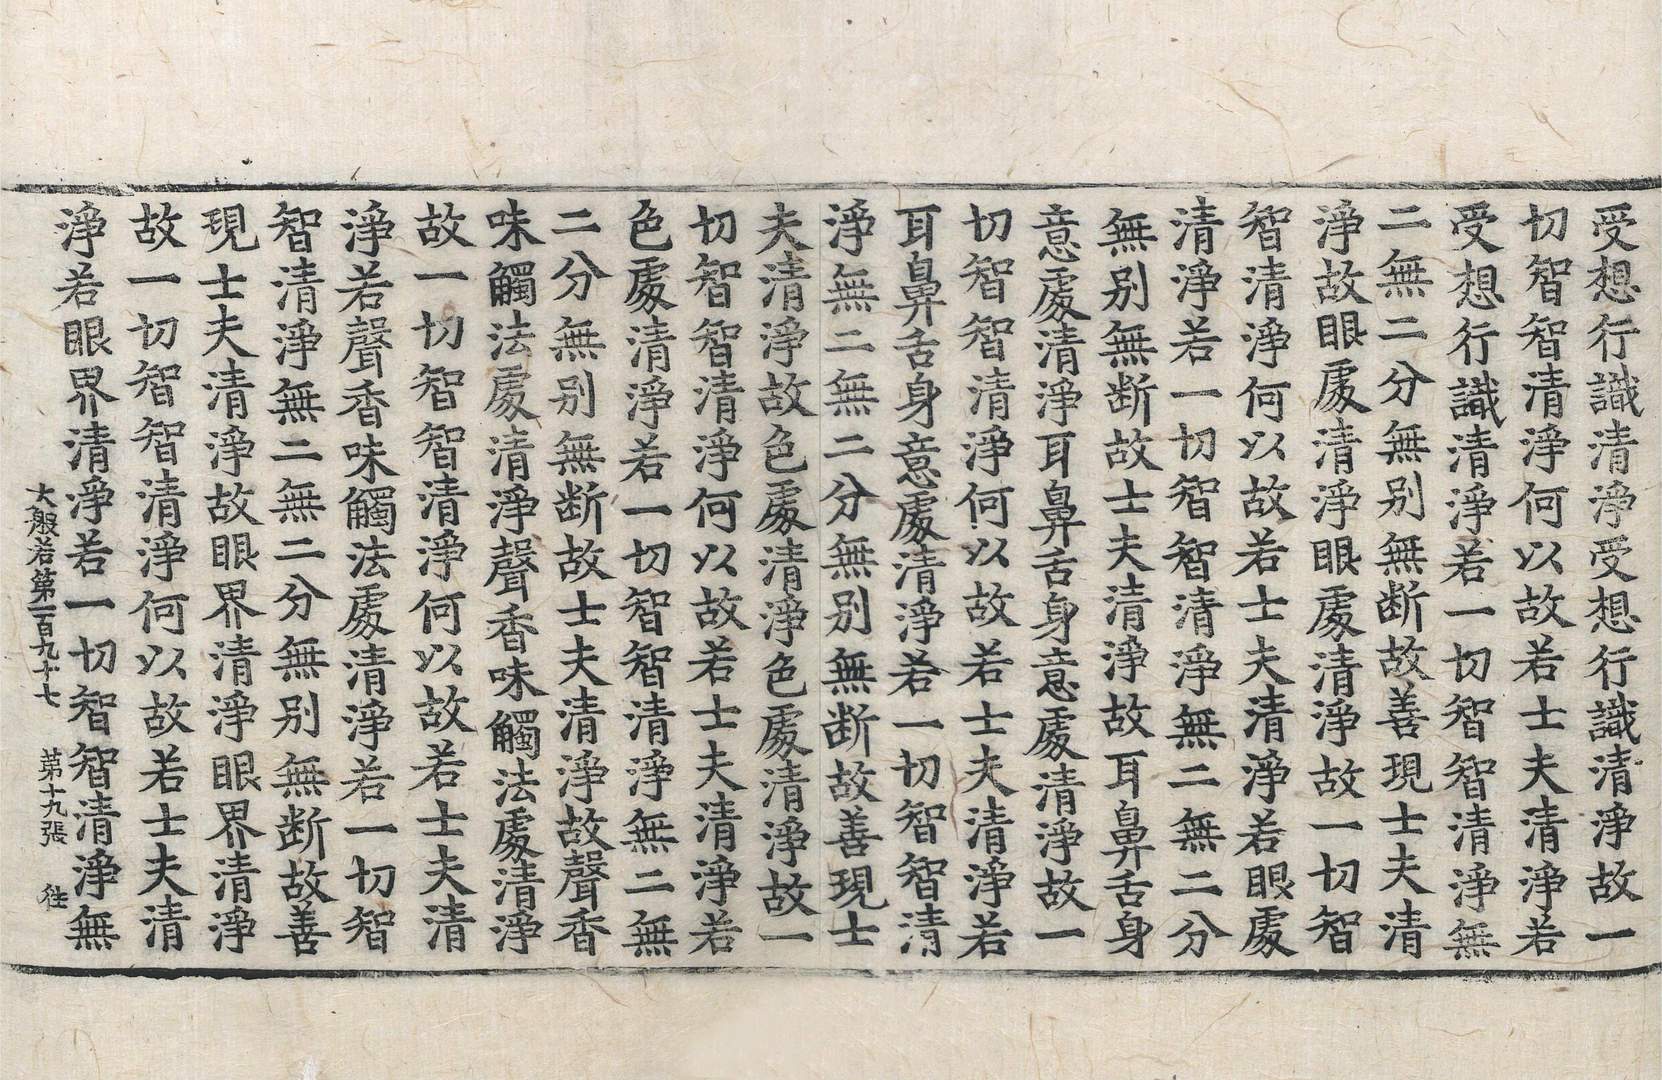 受想行識清淨受想行識清淨故一
切智智清淨何以故若士夫清淨若
受想行識清淨若一切智智清淨無
二無二分無别無断故善現士夫清
淨故眼處清淨眼處清淨故一切智
智清淨何以故若士夫清淨若眼處
清淨若一切智智清淨無二無二分
無别無断故士夫清淨故耳鼻舌身
意處清淨耳鼻舌身意處清淨故一
切智智清淨何以故若士夫清淨若
耳鼻舌身意處清淨若一切智智清
淨無二無二分無别無断故善現士
夫清淨故色處清淨色處清淨故一
切智智清淨何以故若士夫清淨若
色處清淨若一切智智清淨無二無
二分無别無断故士夫清淨故聲香
味觸法處清淨聲香味觸法處清淨
故一切智智清淨何以故若士夫清
淨若聲香味觸法處清淨若一切智
智清淨無二無二分無别無断故善
現士夫清淨故眼界清淨眼界清淨
故一切智智清淨何以故若士夫清
淨若眼界清淨若一切智智清淨無
大般若第一百九十七 第十九張 往